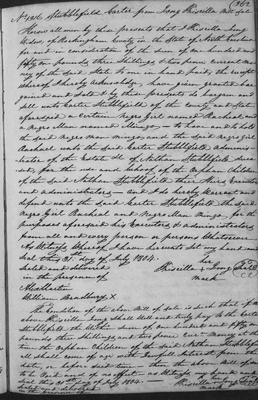 Stubblefield Carter from Long Priscilla Bill Sale
Know all men by these presents that I Priscilla Long
Widow, of Rockingham County in the State of North Carolina
for and in consideration of the sum of one hundred and
fifty one pounds three Shillings & two pence current mo-
ney of the said State to me in hand paid, the receipt
whereof I hereby acknowledge have given granted bar-
gained and sold & by these presents do bargain and
sell unto Carter Stubblefield of the County and State
aforesaid a certain Negro Girl named Rachael and
a Negro Man named Mingo, to have and to hold
the said Negro Man Mingo and the said Negro Girl
Rachael unto the said Carter Stubblefield Adminis-
trator of the Estate &c of Nathan Stubblefield decea-
sed, for the use and behoof of the Orphan Children
of the said Nathan Stubblefield their Heirs Executors
and administrators and I do hereby Warrant and
defend unto the said Carter Stubblefield the said
Negro Girl Rachael and Negro Man Mingo for the
purposes aforesaid his Executors & administrators
from all and every person or persons Whatsoever
In Witness Whereof I have hereunto set my hand and
seal this 31st day of July 1804.
Sealed and delivered
in the presence of
Priscilla Long
her
mark
William Bradbury X
The Condition of the above Bill of Sale is such that if the
above Priscilla Long shall well and truly pay to the Carter
Stubblefield the sum of one hundred and fifty one
pounds three Shillings and two pence current money at the
time the Orphan Children of the said Nathan Stubblefield
shall come of age with lawful Interest from the
date, on or before that time then the above Bill of
Sale to be void and of no effect as Witness my hand and
seal this day of July 1804.
Priscilla Long
mark